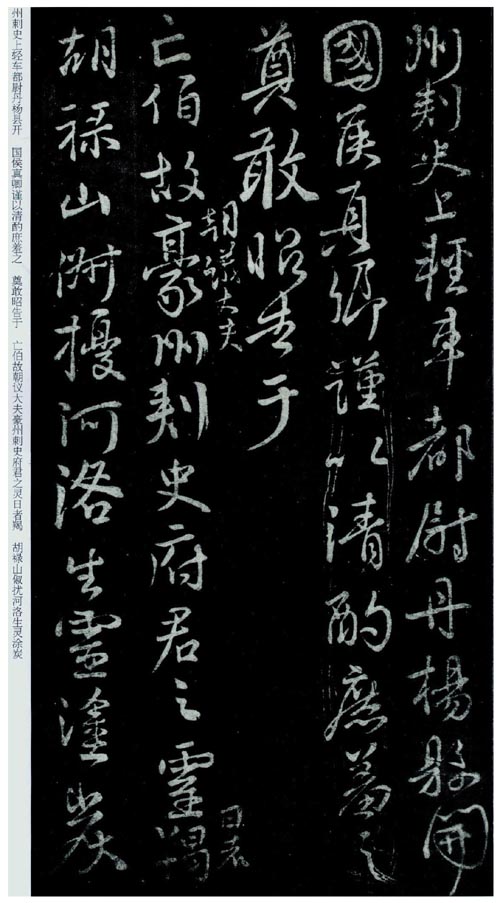 州刺史上輕車都尉丹楊縣開
國侯真卿謹以清酌庶羞之
奠敢昭告于
朝議大夫
亡伯故豪州刺史府君之靈羯
日者
胡祿山俶擾河洛生靈塗炭
州刺史上经车都尉丹杨县开 国侯真卿谨以清酌庶羞之 奠敢昭告于 亡伯故朝议大夫豪州刺史府君之灵日者羯 胡禄山俶扰河洛生灵涂炭